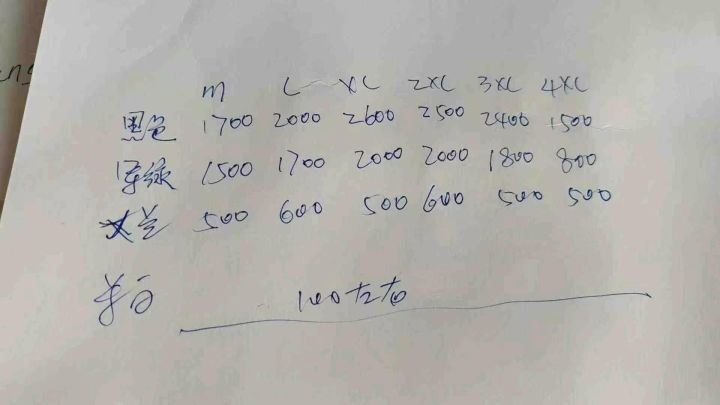 M L XL 2XL 3XL 4XL
黑色 1700 2000 2600 2500 2400 1500
军绿 1500 1700 2000 2000 1800 800
蓝 500 600 500 600 500 500
100左右